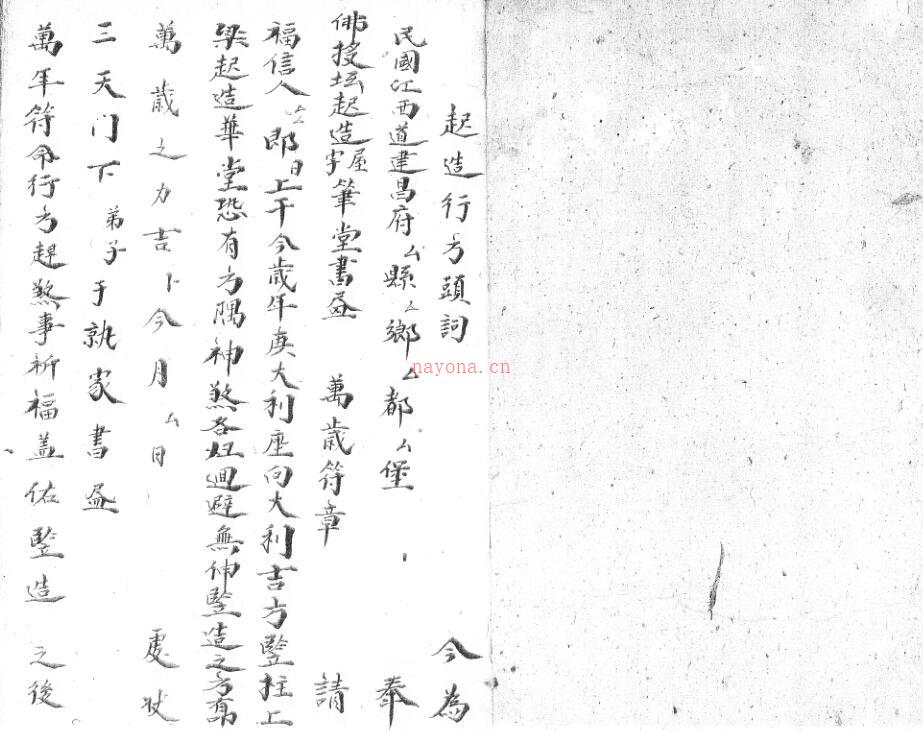 起造行方頭詞 今為
民國江西道建昌府厶縣厶鄉厶都厶堡 奉
佛授坛起造屋宇筆堂書 萬歲符章 請
福信人厶郎日上干今歲年庚大利座向大利吉方竪柱上
梁起造華堂恐有方隅神煞各 迴避無伸竪造之方
萬歲之力吉卜今月厶日 處狀
三天门下弟子于執家書
萬年符命行方起煞事祈福盖佑竪造之後
nayona.cn